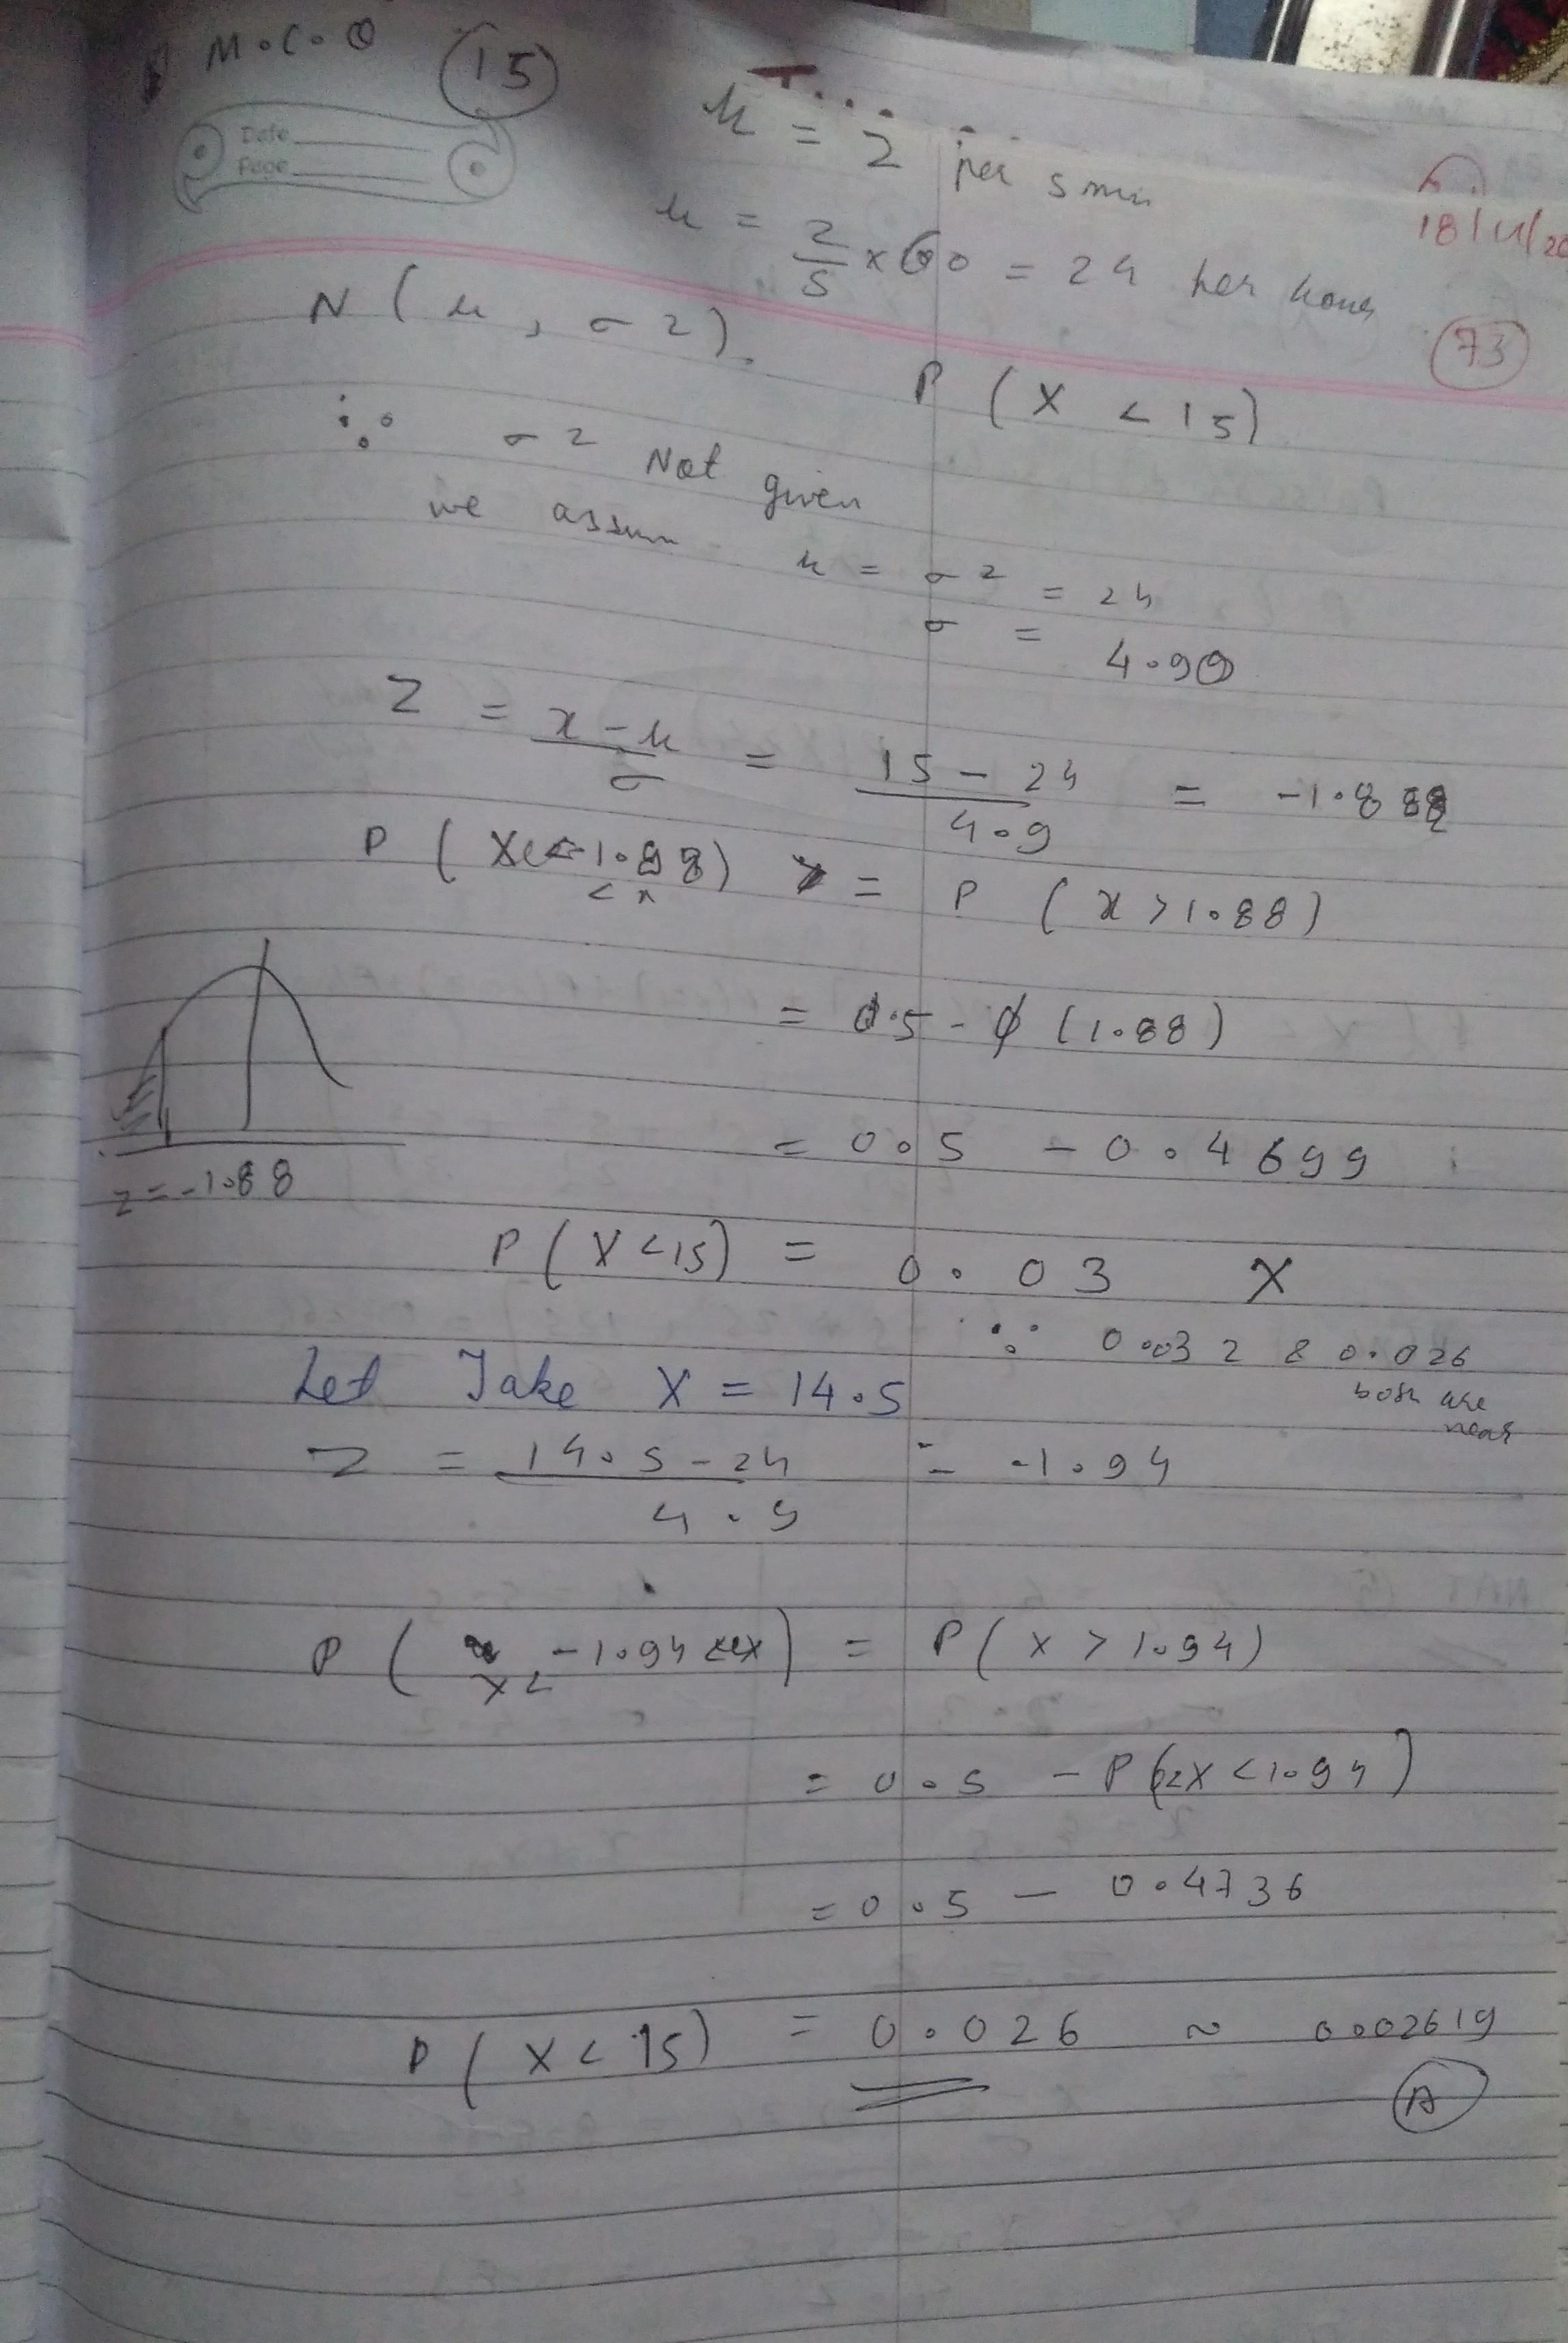 M.C.Q (15)
Date
Page
μ = 2 per 5 min
μ = 2/5 × 60 = 24 per hours
73
N ( μ , σ 2 ) .
P ( X < 15 )
∴ σ 2 Not given
we assum μ = σ 2 = 24
σ = 4.90
Z = x - μ / σ = 15 - 24 / 4.9 = -1.88
P ( X < -1.88 ) = P ( x > 1.88 )
= 0.5 - ϕ (1.88)
= 0.5 - 0.4699
z = -1.88
P ( X < 15 ) = 0.03 X
∵ 0.032 & 0.026
both are
near
Let Take X = 14.5
Z = 14.5 - 24 / 4.9 = -1.94
P ( X < -1.94 ) = P ( X > 1.94 )
= 0.5 - P ( X < 1.94 )
= 0.5 - 0.4736
P ( X < 15 ) = 0.026 ~ 0.02619
A